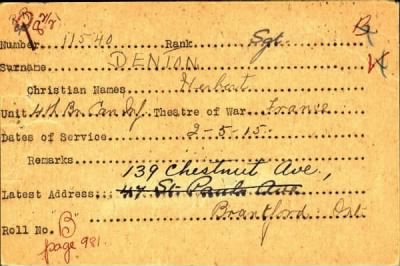 Number 11540 Rank Sgt. B
Surname DENTON
Christian Names Herbert
Unit 4th Bn. Can. Inf. Theatre of War France
Dates of Service 2-5-15.
Remarks
139 Chestnut Ave.,
Latest Address: 47 St. Pauls Ave
Brantford Ont
Roll No. "B"
page 981.